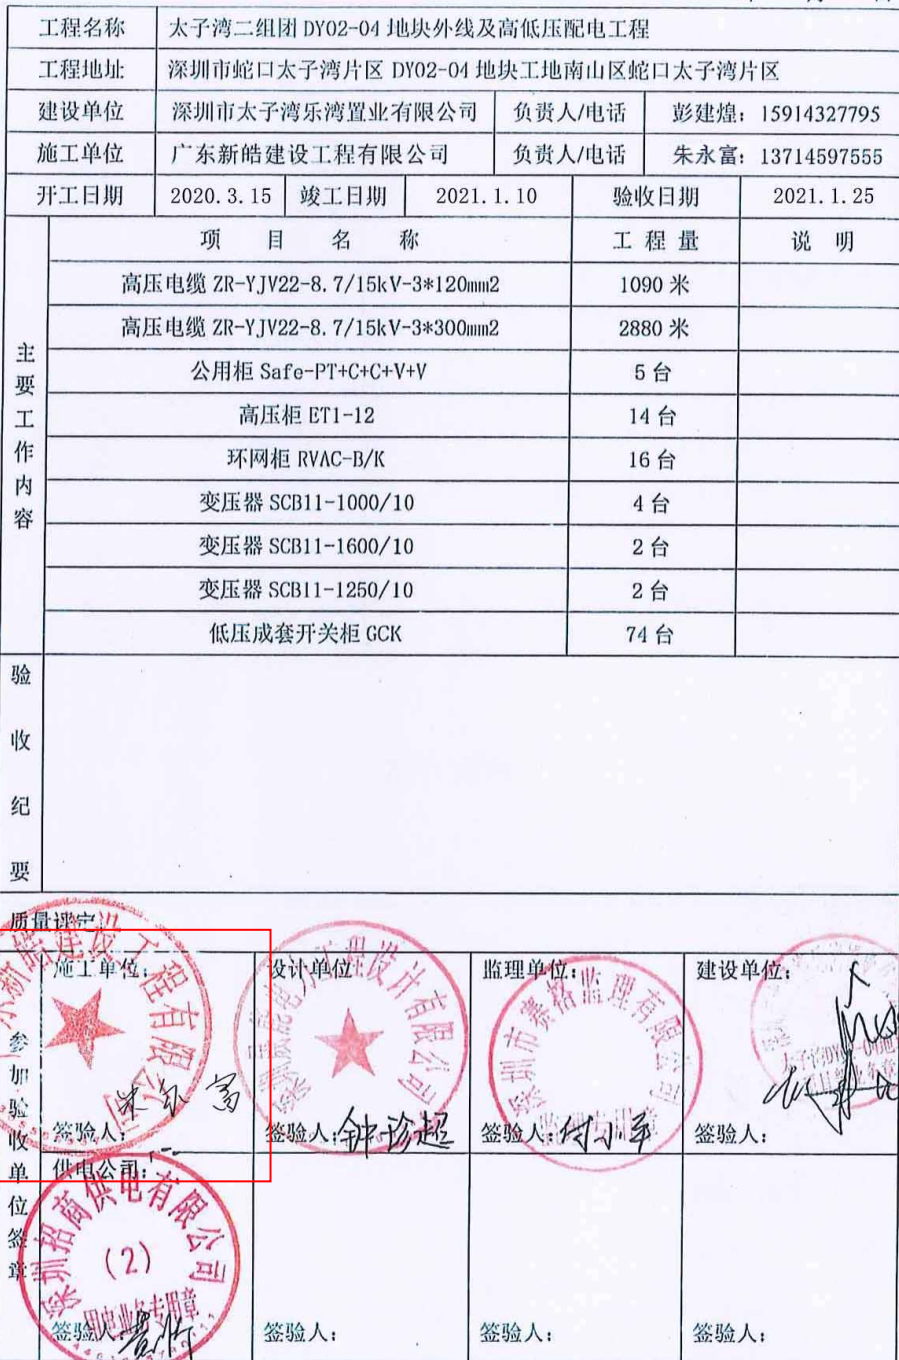 工程名称 太子湾二组团 DY02-04 地块外线及高低压配电工程
工程地址 深圳市蛇口太子湾片区 DY02-04 地块工地南山区蛇口太子湾片区
建设单位 深圳市太子湾乐湾置业有限公司 负责人/电话 彭建煌：15914327795
施工单位 广东新皓建设工程有限公司 负责人/电话 朱永富：13714597555
开工日期 2020.3.15 竣工日期 2021.1.10 验收日期 2021.1.25
主要工作内容
项目名称 工程量 说明
高压电缆 ZR-YJV22-8.7/15kV-3*120mm2 1090 米
高压电缆 ZR-YJV22-8.7/15kV-3*300mm2 2880 米
公用柜 Safe-PT+C+C+V+V 5 台
高压柜 ET1-12 14 台
环网柜 RVAC-B/K 16 台
变压器 SCB11-1000/10 4 台
变压器 SCB11-1600/10 2 台
变压器 SCB11-1250/10 2 台
低压成套开关柜 GCK 74 台
验收纪要
质量评定
参加验收单位签章
施工单位： 设计单位 监理单位： 建设单位：
新皓建设工程有限公司
工程设计有限公司
深圳市赛格监理有限公司
朱永富
签验人： 签验人：钟珍超 签验人：付小平 签验人：
供电公司：
深圳招商供电有限公司
(2)
用电业务专用章
签验人： 签验人： 签验人： 签验人：